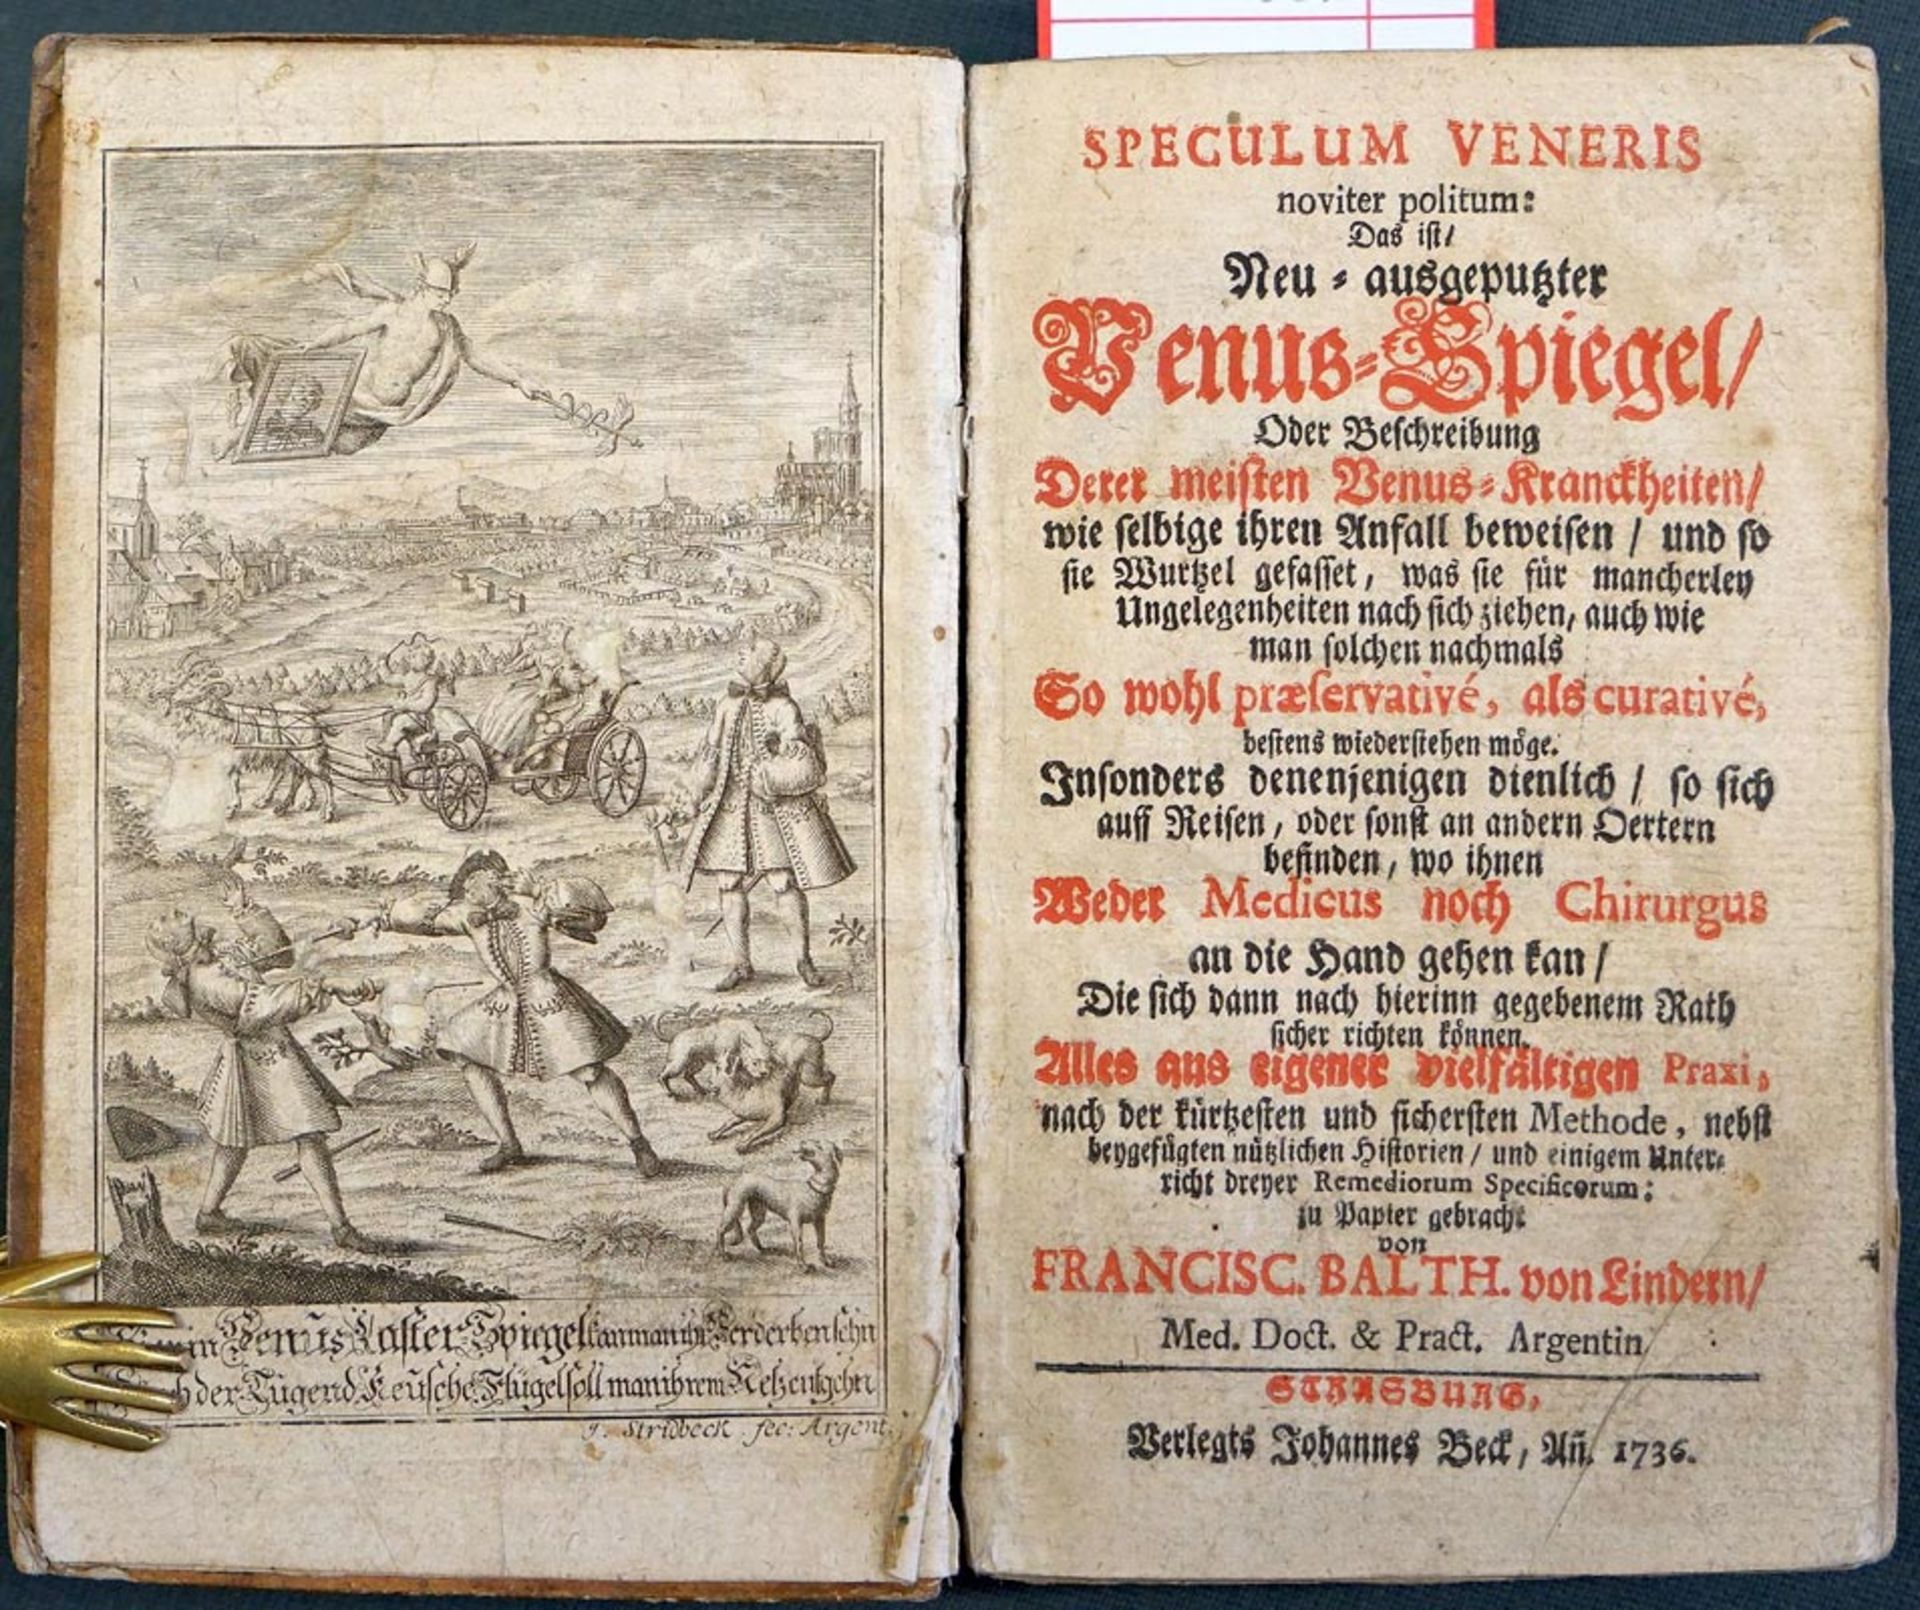 in Venus Laster Spiegel kan man ihr Verderben sehn
der Tugend Keusche Flügel soll man ihrem Netz entgehn
J. Stridbeck fec: Argent.
SPECULUM VENERIS
noviter politum:
Das ist/
Neu-ausgeputzter
Venus-Spiegel/
Oder Beschreibung
Derer meisten Venus-Kranckheiten/
wie selbige ihren Anfall beweisen / und so
sie Wurtzel gefasset, was sie für mancherley
Ungelegenheiten nach sich ziehen, auch wie
man solchen nachmals
So wohl præservativé, als curativé,
bestens wiederstehen möge.
Insonders denenjenigen dienlich / so sich
auff Reisen, oder sonst an andern Oertern
befinden, wo ihnen
Weder Medicus noch Chirurgus
an die Hand gehen kan/
Die sich dann nach hierinn gegebenem Rath
sicher richten können.
Alles aus eigener vielfältigen Praxi,
nach der kürtzesten und sichersten Methode, nebst
beygefügten nützlichen Historien / und einigem Unter-
richt dreyer Remediorum Specificorum:
zu Papier gebracht
von
FRANCISC. BALTH. von Lindern/
Med. Doct. & Pract. Argentin.
STRASBURG,
Verlegts Johannes Beck, Añ. 1736.